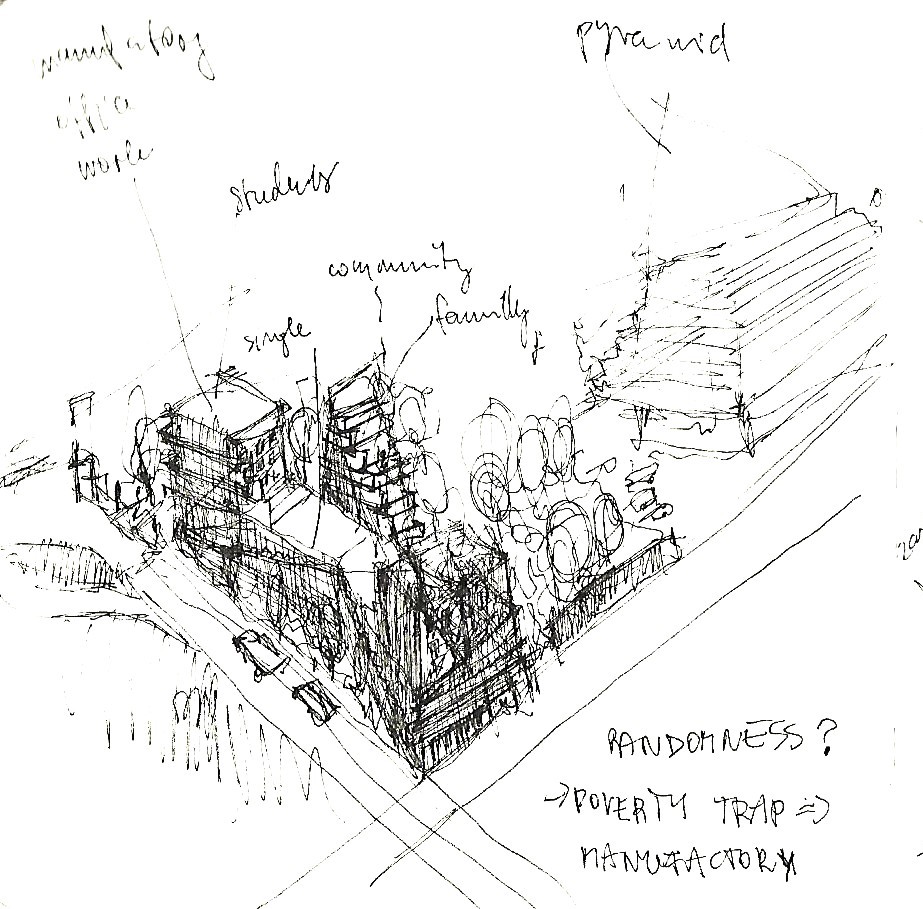 manufatory
office
work
pyramid
students
community
single
familly
RANDOMNESS?
→POVERTY TRAP ⇒
MANUFACTORY